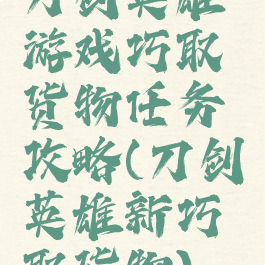 刀剑英雄
游戏巧取
货物任务
攻略(刀剑
英雄新巧
取货物)